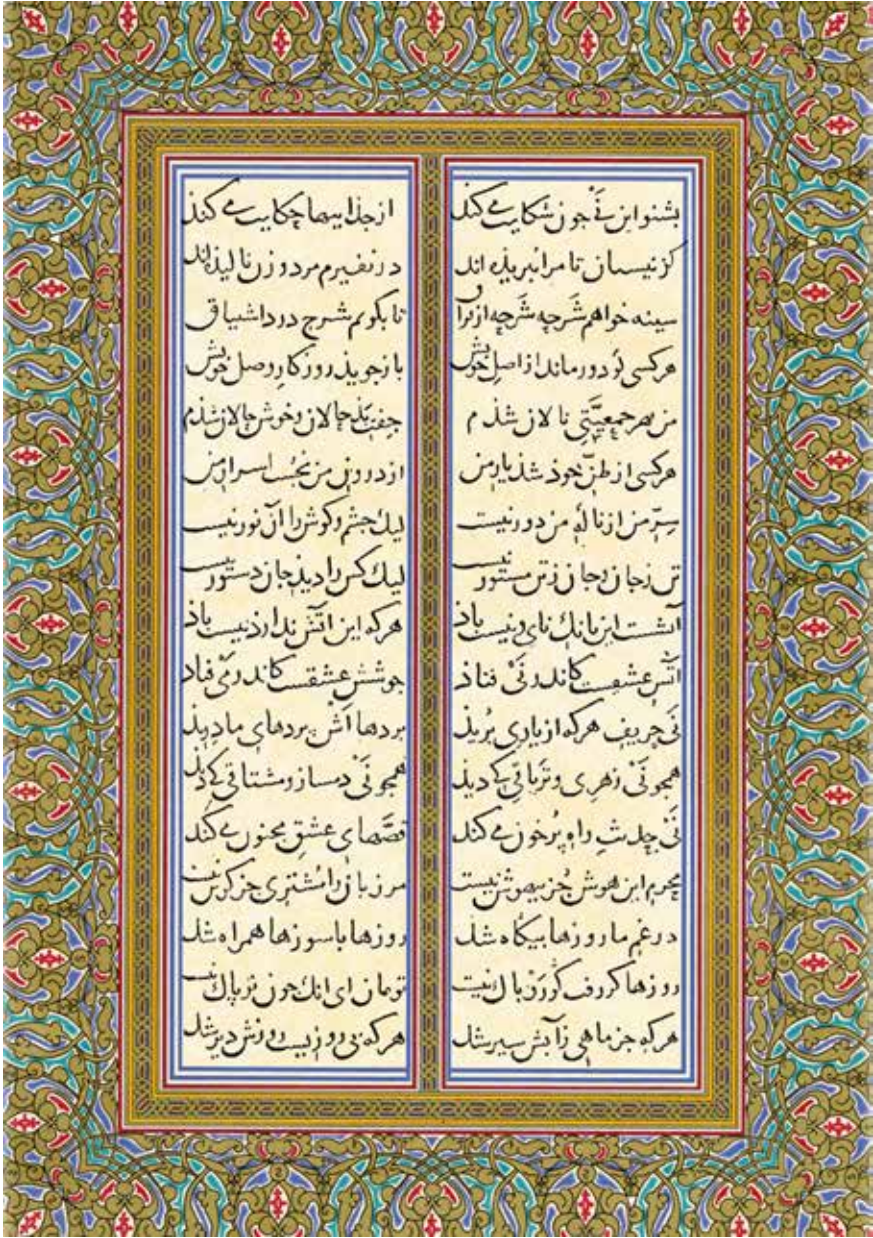 بشنو این نی جون شکایت می کند از جذاییها حکایت می کند
کز نیستان تا مرا ببریذه اند در نفیرم مرد و زن نالیذه اند
سینه خواهم شرحه شرحه از فراق تا بگویم شرح درد اشتیاق
هر کسی کو دور ماند از اصل خویش باز جویذ روزکار وصل خویش
من بهر جمعیتی نالان شذم جفت بذحالان و خوش حالان شذم
هر کسی از ظن خوذ شذ یار من از درون من نجست اسرار من
سر من از ناله من دور نیست لیک جشم و کوش را آن نور نیست
تن ز جان و جان ز تن مستور نیست لیک کس را دید جان دستور نیست
آتشست این بانک نای و نیست باذ هر که این آتش نداردذ نیست باذ
آتش عشقست کاندر نی فتاذ جوشش عشقست کاندر می فتاد
نی حریف هر که از یاری بریذ بردهااش بردهای ما دریذ
همجو نی زهری و تریاقی که دیذ همجو نی دمساز و مشتاقی که دیذ
نی حدیث راه پر خون می کند قصهای عشق مجنون می کند
محرم این هوش جز بیهوش نیست مر زبان را مشتری جز کوش نیست
در غم ما روزها بیکاه شد روزها با سوزها همراه شد
روزها کر رفت کو رو باک نیست تو مان ای آنک جون تو باک نیست
هر که جز ماهی ز آبش سیر شد هر که بی روزیست روزش دیر شد